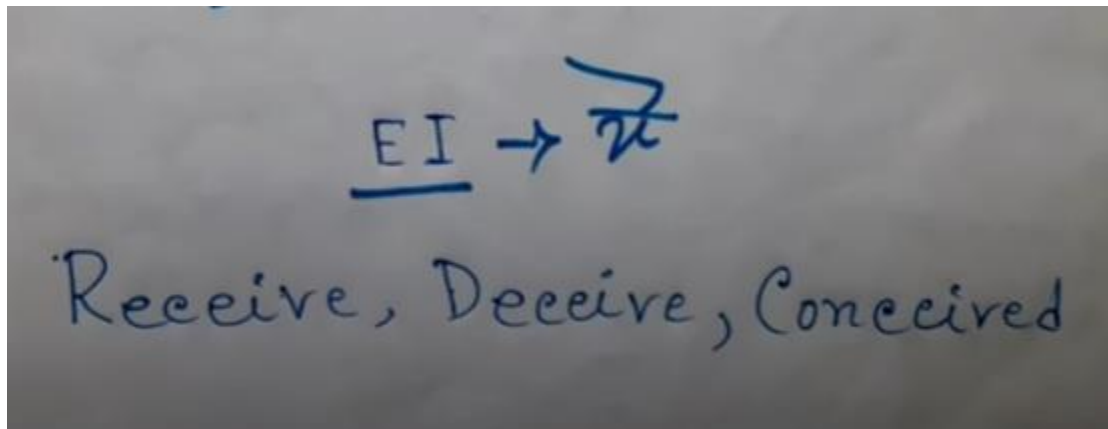 EI →
Receive, Deceive, Conceived